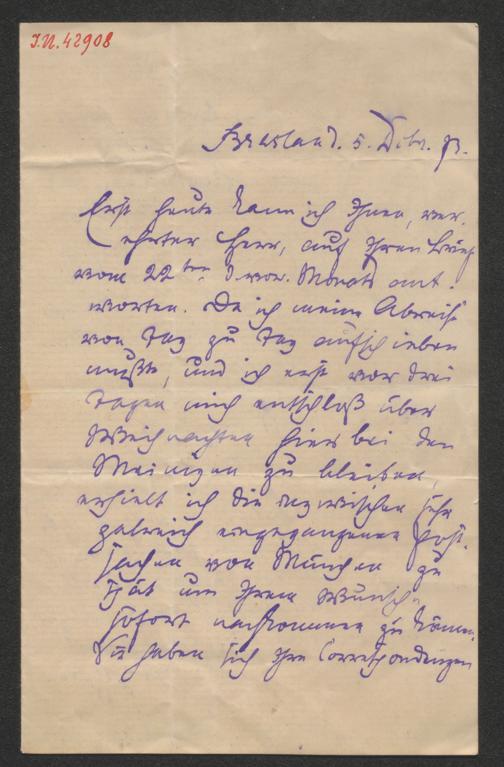 I.N. 42908
5. Dcbr. 93.
Erst heute kann ich Ihnen, ver-
ehrter Herr, auf Ihren Brief
vom 22ten d. vor. Monats ant-
worten. Da ich meine Abreise
von Tag zu Tag aufschieben
mußte, und ich erst vor drei
Tagen mich entschloß über
Weihnachten hier bei den
Meinigen zu bleiben,
erhielt ich die inzwischen sehr
zalreich eingegangenen Post-
sachen von München zu
spät um Ihrem Wunsche
sofort nachkommen zu können.
Sie haben sich Ihre Correspondenzen